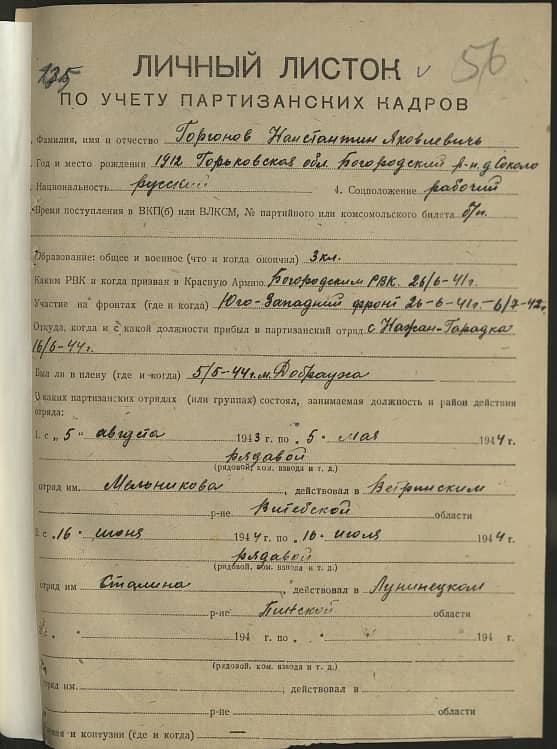 135 56
ЛИЧНЫЙ ЛИСТОК
ПО УЧЕТУ ПАРТИЗАНСКИХ КАДРОВ
. Фамилия, имя и отчество Горюнов Канстантин Яковлевичь
. Год и место рождения 1912. Горьковская обл. Богородский р-н. д.
. Национальность русский 4. Соцположение рабочий
Время поступления в ВКП(б) или ВЛКСМ, № партийного или комсомольского билета б/п.
Образование: общее и военное (что и когда окончил) 3 кл.
Каким РВК и когда призван в Красную Армию. Богородским РВК. 26/6-41г.
Участие на фронтах (где и когда) Юго-Западний фронт 26-6-41г.-6/7-42г.
Откуда, когда и с какой должности прибыл в партизанский отряд с Кажан-Гарадка
16/6-44г.
Был ли в плену (где и когда) 5/5-44г. м.
В каких партизанских отрядах (или группах) состоял, занимаемая должность и район действия
отряда:
1. с „ 5 " августа 1943 г. по „ 5 " мая 1944 г.
рядавой
(рядовой, ком. взвода и т. д.)
отряд им. Мельникова , действовал в Ветринским
р-не Витебской области
2. с „ 16 " июня 1944 г. по „ 16 " июля 1944 г.
рядавой
(рядовой, ком. взвода и т. д.)
отряд им Сталина , действовал в Лунинецком
р-не Пинской области
с „ " 194 г. по „ " 194 г.
(рядовой, ком. взвода и т. д.)
отряд им. , действовал в
р-не области
и контузии (где и когда) —